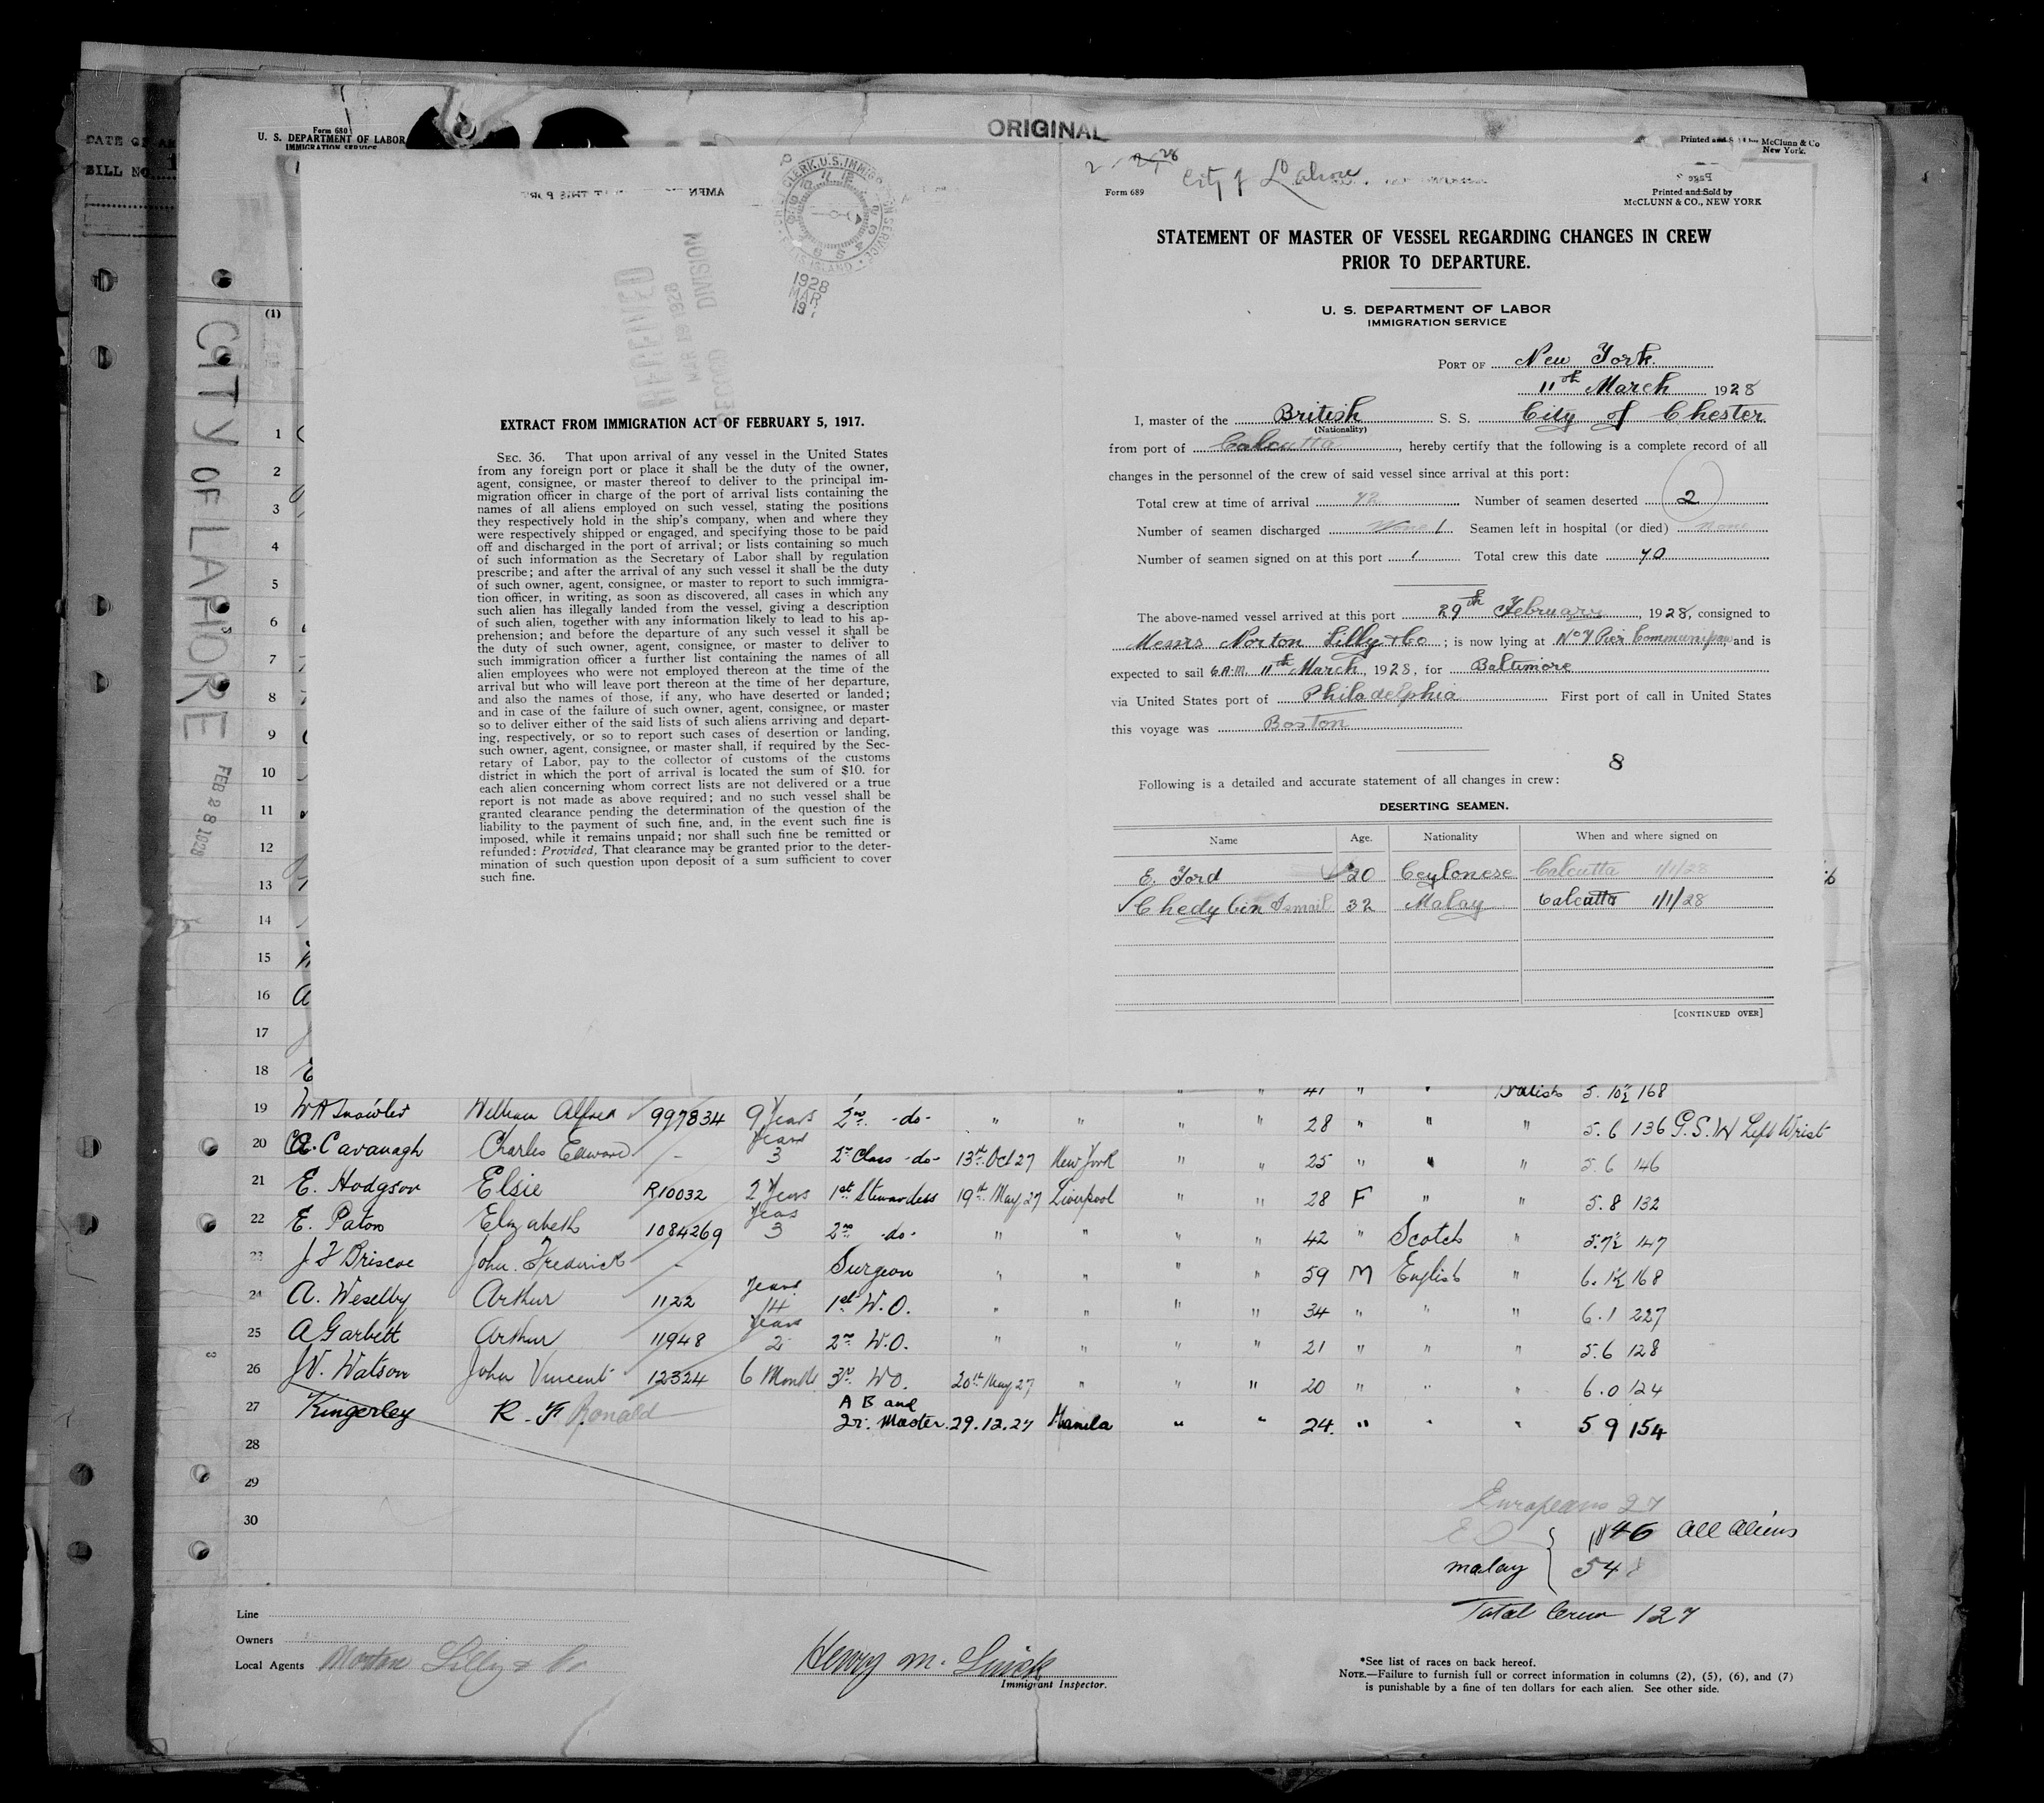 DATE OF AR
BILL NO. 1
Form 680
U. S. DEPARTMENT OF LABOR
IMMIGRATION SERVICE
ORIGINAL
Printed and Sold by McClunn & Co
New York.
CITY OF LAHORE
FEB 28 1928
(1)
CLERK, U.S. IMMIGRATION SERVICE
ELLIS ISLAND
1928
MAR
19
RECEIVED
MAR 19 1928
DIVISION
EXTRACT FROM IMMIGRATION ACT OF FEBRUARY 5, 1917.
SEC. 36. That upon arrival of any vessel in the United States
from any foreign port or place it shall be the duty of the owner,
agent, consignee, or master thereof to deliver to the principal im-
migration officer in charge of the port of arrival lists containing the
names of all aliens employed on such vessel, stating the positions
they respectively hold in the ship's company, when and where they
were respectively shipped or engaged, and specifying those to be paid
off and discharged in the port of arrival; or lists containing so much
of such information as the Secretary of Labor shall by regulation
prescribe; and after the arrival of any such vessel it shall be the duty
of such owner, agent, consignee, or master to report to such immigra-
tion officer, in writing, as soon as discovered, all cases in which any
such alien has illegally landed from the vessel, giving a description
of such alien, together with any information likely to lead to his ap-
prehension; and before the departure of any such vessel it shall be
the duty of such owner, agent, consignee, or master to deliver to
such immigration officer a further list containing the names of all
alien employees who were not employed thereon at the time of the
arrival but who will leave port thereon at the time of her departure,
and also the names of those, if any, who have deserted or landed;
and in case of the failure of such owner, agent, consignee, or master
so to deliver either of the said lists of such aliens arriving and depart-
ing, respectively, or so to report such cases of desertion or landing,
such owner, agent, consignee, or master shall, if required by the Sec-
retary of Labor, pay to the collector of customs of the customs
district in which the port of arrival is located the sum of $10. for
each alien concerning whom correct lists are not delivered or a true
report is not made as above required; and no such vessel shall be
granted clearance pending the determination of the question of the
liability to the payment of such fine, and, in the event such fine is
imposed, while it remains unpaid; nor shall such fine be remitted or
refunded: Provided, That clearance may be granted prior to the deter-
mination of such question upon deposit of a sum sufficient to cover
such fine.
City of Lahore
Form 689
Printed and Sold by
McCLUNN & CO., NEW YORK
STATEMENT OF MASTER OF VESSEL REGARDING CHANGES IN CREW
PRIOR TO DEPARTURE.
U. S. DEPARTMENT OF LABOR
IMMIGRATION SERVICE
PORT OF New York.
11th March 1928
I, master of the British S. S. City of Chester
(Nationality)
from port of Calcutta, hereby certify that the following is a complete record of all
changes in the personnel of the crew of said vessel since arrival at this port:
Total crew at time of arrival 72 Number of seamen deserted 2
Number of seamen discharged None 1 Seamen left in hospital (or died) none
Number of seamen signed on at this port 1 Total crew this date 70
The above-named vessel arrived at this port 29th February, 1928, consigned to
Messrs Norton Lilly & Co; is now lying at No 7 Pier Communipaw and is
expected to sail 6 A.M. 11th March, 1928, for Baltimore
via United States port of Philadelphia First port of call in United States
this voyage was Boston
8
Following is a detailed and accurate statement of all changes in crew:
DESERTING SEAMEN.
Name Age. Nationality When and where signed on
E. Ford 20 Ceylonese Calcutta 1/1/28
Chedy bin Ismail 32 Malay Calcutta 1/1/28
[CONTINUED OVER]
1
2
3
4
5
6
7
8
9
10
11
12
13
14
15
16
17
18 41 " " British 5. 10½ 168
19 William Alfred 997834 9 Years 2nd -do- " " " " 28 " " " 5.6 136 G.S.W Left Wrist
20 C.E. Cavanagh Charles Edward - 3 Years 2nd Class -do- 13th Oct 27 New York " " 25 " " " 5.6 146
21 E. Hodgson Elsie R10032 2 Years 1st Stewardess 19th May 27 Liverpool " " 28 F " " 5.8 132
22 E. Paton Elizabeth 1084269 3 Years 2nd -do- " " " " 42 " Scotch " 5.7½ 147
23 J F Briscoe John Frederick - Surgeon " " " " 59 M English " 6.1½ 168
24 A. Weselby Arthur 1122 14 Years 1st W.O. " " " " 34 " " " 6.1 227
25 A Garbett Arthur 11948 2 Years 2nd W.O. " " " " 21 " " " 5.6 128
26 J.V. Watson John Vincent 12324 6 Months 3rd WO. 20th May 27 " " " 20 " " " 6.0 124
27 Kingerley R. F Ronald A B and
2r. Master. 29.12.27 Manila " " 24. " " " 5 9 154
28
29
30
Europeans 27
46 All Aliens
malay 54
Total Crew 127
Line
Owners
Local Agents Norton Lilly & Co
Henry M.
Immigrant Inspector.
*See list of races on back hereof.
NOTE.—Failure to furnish full or correct information in columns (2), (5), (6), and (7)
is punishable by a fine of ten dollars for each alien. See other side.